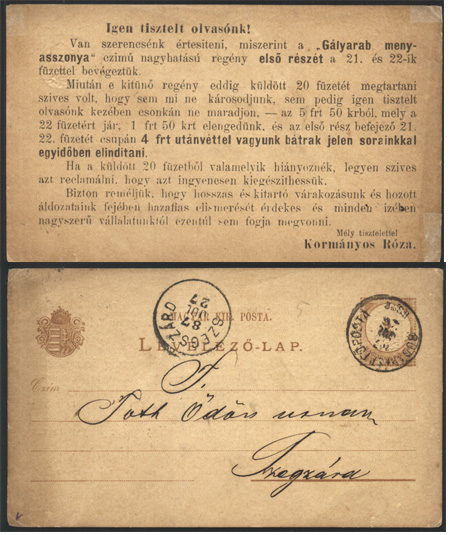 Igen tisztelt olvasónk!
Van szerencsénk értesiteni, miszerint a „Gályarab meny-
asszonya“ czimü nagyhatású regény első részét a 21. és 22-ik
füzettel bevégeztük.
Miután e kitünő regény eddig küldött 20 füzetét megtartani
szives volt, hogy sem mi ne károsodjunk, sem pedig igen tisztelt
olvasónk kezében csonkán ne maradjon, — az 5 frt 50 krból, mely a
22 füzetért jár, 1 frt 50 krt elengedünk, és az első rész befejező 21.
22. füzetét csupán 4 frt utánvéttel vagyunk bátrak jelen sorainkkal
egyidőben elinditani.
Ha a küldött 20 füzetből valamelyik hiányoznék, legyen szives
azt reclamálni, hogy azt ingyenesen kiegészithessük.
Bizton reméljük, hogy hosszas és kitartó várakozásunk és hozott
áldozataink fejében hazafias elismerését érdekes és minden izében
nagyszerű vállalatunktól ezentúl sem fogja megvonni.
Mély tisztelettel
Kormányos Róza.
MAGYAR KIR. POSTA.
LEVELEZŐ-LAP.
SZEGSZÁRD
87
27
BUDAPEST FŐPOSTA
Czim
T.
Tóth Ödön
Szegzárd